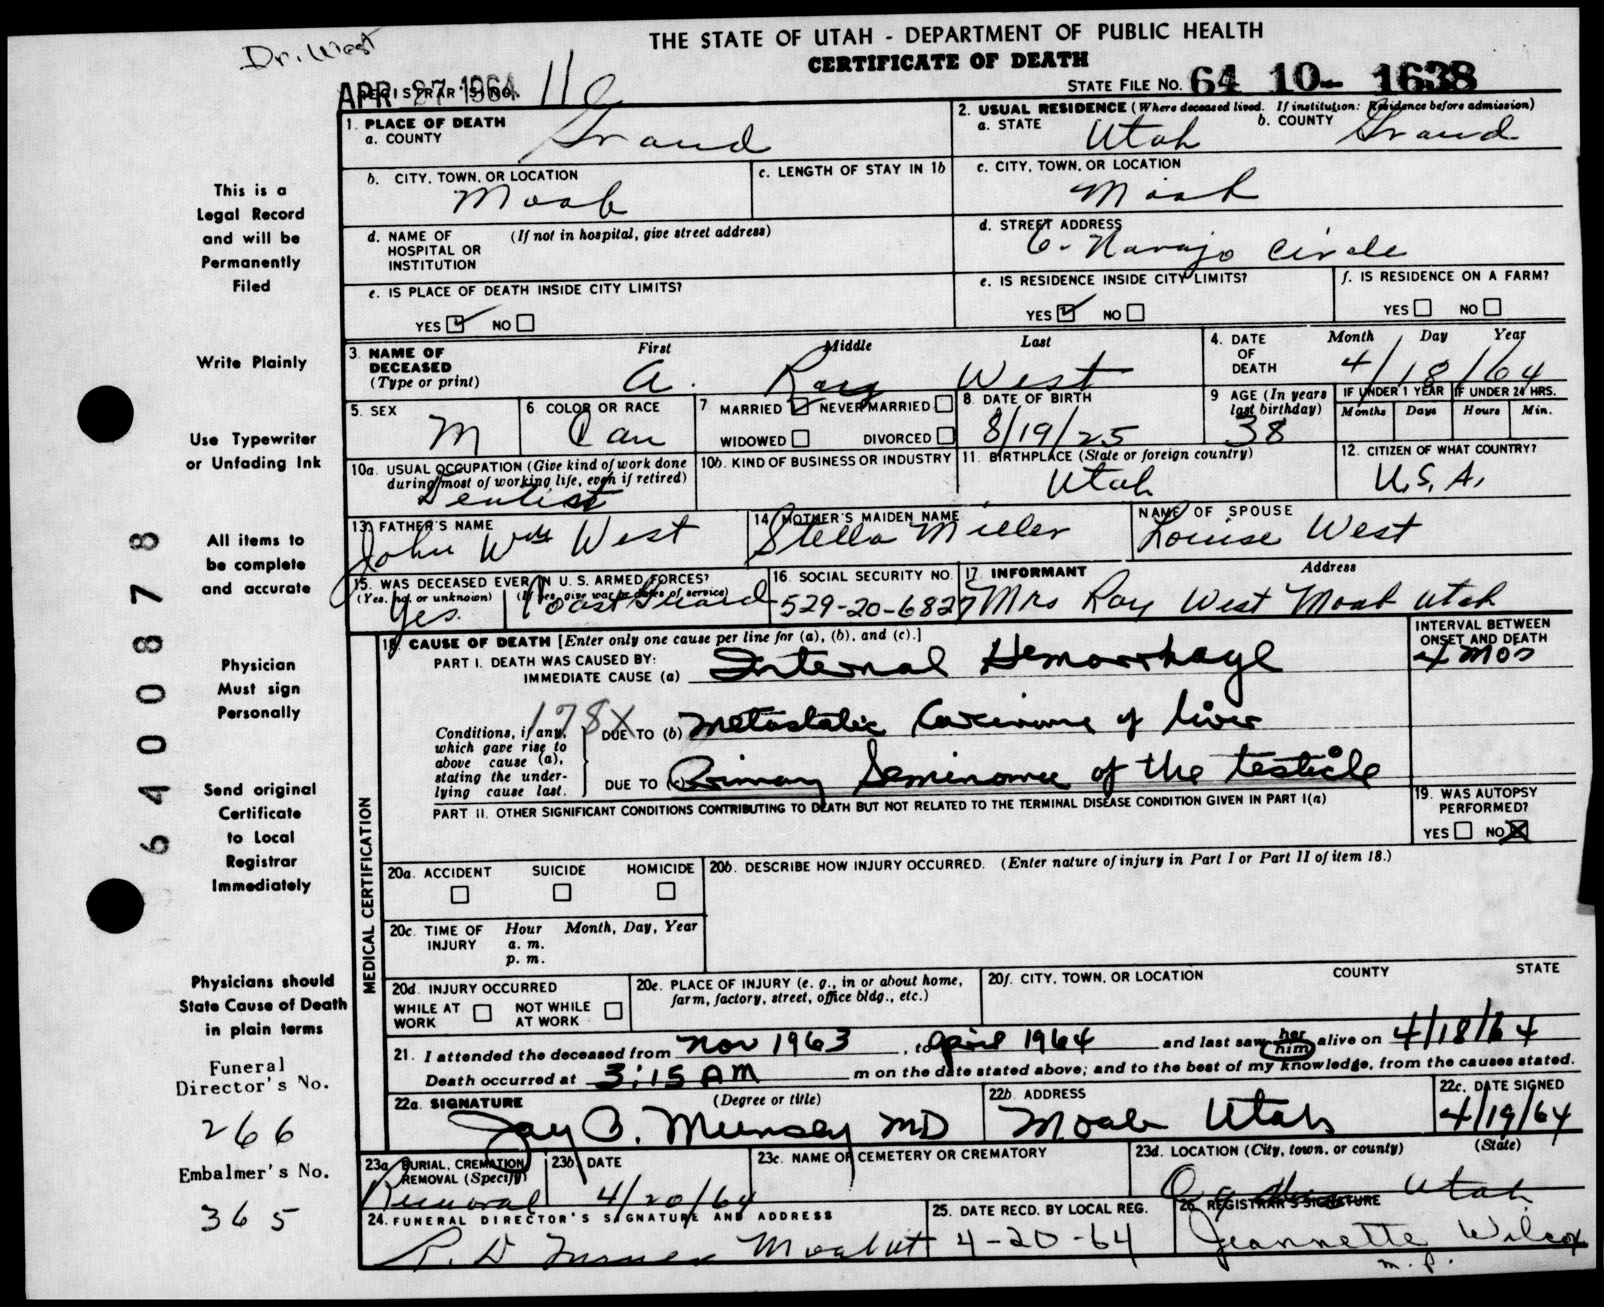 Dr. West
THE STATE OF UTAH - DEPARTMENT OF PUBLIC HEALTH
CERTIFICATE OF DEATH
APR 27 1964
REGISTRAR'S NO. 11
STATE FILE NO. 64 10- 1638
1. PLACE OF DEATH
a. COUNTY Grand
2. USUAL RESIDENCE (Where deceased lived. If institution: Residence before admission)
a. STATE Utah b. COUNTY Grand
b. CITY, TOWN, OR LOCATION Moab
c. LENGTH OF STAY IN 1b
c. CITY, TOWN, OR LOCATION Moab
d. NAME OF HOSPITAL OR INSTITUTION (If not in hospital, give street address)
d. STREET ADDRESS
6 - Navajo Circle
e. IS PLACE OF DEATH INSIDE CITY LIMITS?
YES NO
e. IS RESIDENCE INSIDE CITY LIMITS?
YES NO
f. IS RESIDENCE ON A FARM?
YES NO
3. NAME OF DECEASED (Type or print)
First Middle Last
A. Ray West
4. DATE OF DEATH
Month Day Year
4/18/64
5. SEX M
6. COLOR OR RACE Cau
7. MARRIED NEVER MARRIED
WIDOWED DIVORCED
8. DATE OF BIRTH
8/19/25
9. AGE (In years last birthday) 38
IF UNDER 1 YEAR IF UNDER 24 HRS.
Months Days Hours Min.
10a. USUAL OCCUPATION (Give kind of work done during most of working life, even if retired)
Dentist
10b. KIND OF BUSINESS OR INDUSTRY
11. BIRTHPLACE (State or foreign country)
Utah
12. CITIZEN OF WHAT COUNTRY?
U.S.A.
13. FATHER'S NAME
John Wm West
14. MOTHER'S MAIDEN NAME
Stella Miller
NAME OF SPOUSE
Louise West
15. WAS DECEASED EVER IN U. S. ARMED FORCES?
(Yes, no, or unknown) (If yes, give war or dates of service)
Yes. Coast Guard
16. SOCIAL SECURITY NO.
529-20-6827
17. INFORMANT Address
Mrs Ray West Moab Utah
18. CAUSE OF DEATH [Enter only one cause per line for (a), (b), and (c).]
INTERVAL BETWEEN ONSET AND DEATH
PART I. DEATH WAS CAUSED BY:
IMMEDIATE CAUSE (a) Internal Hemorrhage
4 mos
178X
Conditions, if any, which gave rise to above cause (a), stating the underlying cause last.
DUE TO (b) Metastatic Carcinoma of liver
DUE TO (c) Primary Seminoma of the testicle
PART II. OTHER SIGNIFICANT CONDITIONS CONTRIBUTING TO DEATH BUT NOT RELATED TO THE TERMINAL DISEASE CONDITION GIVEN IN PART I(a)
19. WAS AUTOPSY PERFORMED?
YES NO
MEDICAL CERTIFICATION
20a. ACCIDENT SUICIDE HOMICIDE
20b. DESCRIBE HOW INJURY OCCURRED. (Enter nature of injury in Part I or Part II of item 18.)
20c. TIME OF INJURY
Hour Month, Day, Year
a. m.
p. m.
20d. INJURY OCCURRED
WHILE AT WORK NOT WHILE AT WORK
20e. PLACE OF INJURY (e. g., in or about home, farm, factory, street, office bldg., etc.)
20f. CITY, TOWN, OR LOCATION COUNTY STATE
21. I attended the deceased from Nov 1963, to April 1964 and last saw her him alive on 4/18/64
Death occurred at 3:15 AM m on the date stated above; and to the best of my knowledge, from the causes stated.
22a. SIGNATURE (Degree or title)
Jay P. Munsey MD
22b. ADDRESS
Moab Utah
22c. DATE SIGNED
4/19/64
23a. BURIAL, CREMATION, REMOVAL (Specify)
Removal
23b. DATE
4/20/64
23c. NAME OF CEMETERY OR CREMATORY
23d. LOCATION (City, town, or county) (State)
Utah
24. FUNERAL DIRECTOR'S SIGNATURE AND ADDRESS
R. D Turner Moab Ut
25. DATE RECD. BY LOCAL REG.
4-20-64
26. REGISTRAR'S SIGNATURE
Jeannette Wilcox
m.p.
This is a
Legal Record
and will be
Permanently
Filed
Write Plainly
Use Typewriter
or Unfading Ink
All items to
be complete
and accurate
Physician
Must sign
Personally
Send original
Certificate
to Local
Registrar
Immediately
Physicians should
State Cause of Death
in plain terms
Funeral
Director's No.
266
Embalmer's No.
365
6400878